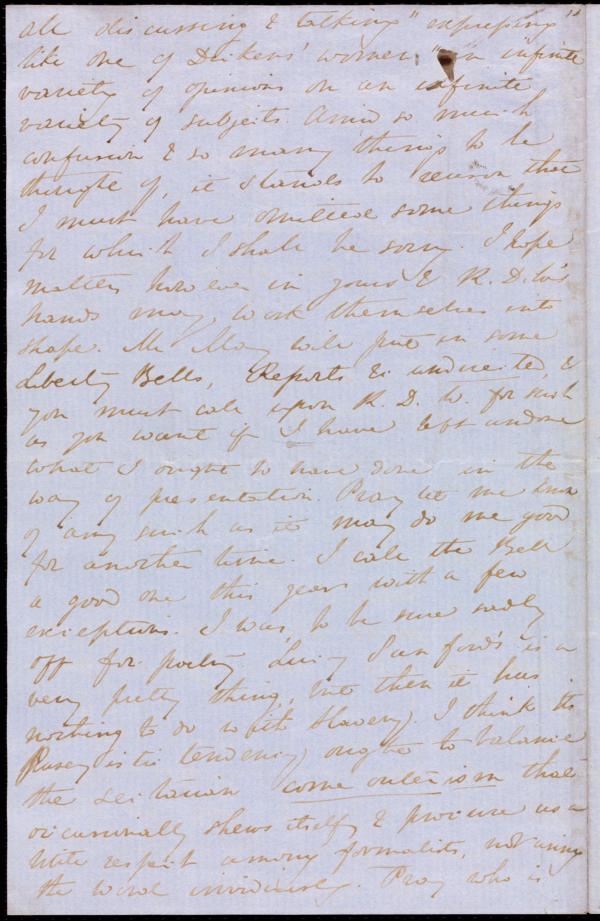 all discussing & talking "expressing
like one of Dickens' women "an infinite
variety of opinions on an infinite
variety of subjects. Amid so much
confusion & so many things to be
thought of, it stands to reason that
I must have omitted some things
for which I shall be sorry. I hope
matters however in yours & R. D. W's
hands may work themselves into
shape. Mr May will put in some
Liberty Bells, Reports &c undirected, &
you must call upon R. D. W. for such
as you want if I have left undone
what I ought to have done in the
way of presentation. Pray let me know
of any such as it may do me good
for another time. I call the Bell
a good one this year with a few
exceptions. I was, to be sure sadly
off for poetry. Lucy Sanford's is a
very pretty thing, but then it has
nothing to do with Slavery. I think its
Puseyistic tendency ought to balance
the Leitarian come outer ism that
occasionally shews itself & procure us a
little respect among formalists, not using
the word invidiously. Pray who is